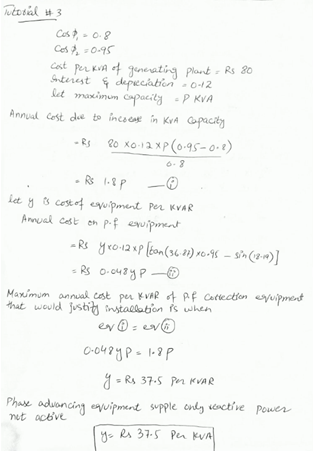 Tutorial #3
Cos ϕ₁ = 0.8
Cos ϕ₂ = 0.95
Cost per KVA of generating plant = Rs 80
Interest & depreciation = 0.12
let maximum capacity = P KVA
Annual Cost due to increase in KVA Capacity
= Rs 80 x 0.12 x P (0.95 - 0.8)
0.8
= Rs 1.8 P — (i)
let y is cost of equipment per KVAR
Annual Cost on p.f equipment
= Rs y x 0.12 x P [tan(36.87) x 0.95 - sin(18.19)]
= Rs 0.048 y P — (ii)
Maximum annual cost per KVAR of P.f correction equipment
that would justify installation is when
eq (i) = eq (ii)
0.048 y P = 1.8 P
y = Rs 37.5 per KVAR
Phase advancing equipment supple only reactive power
not active
y = Rs 37.5 Per KVA